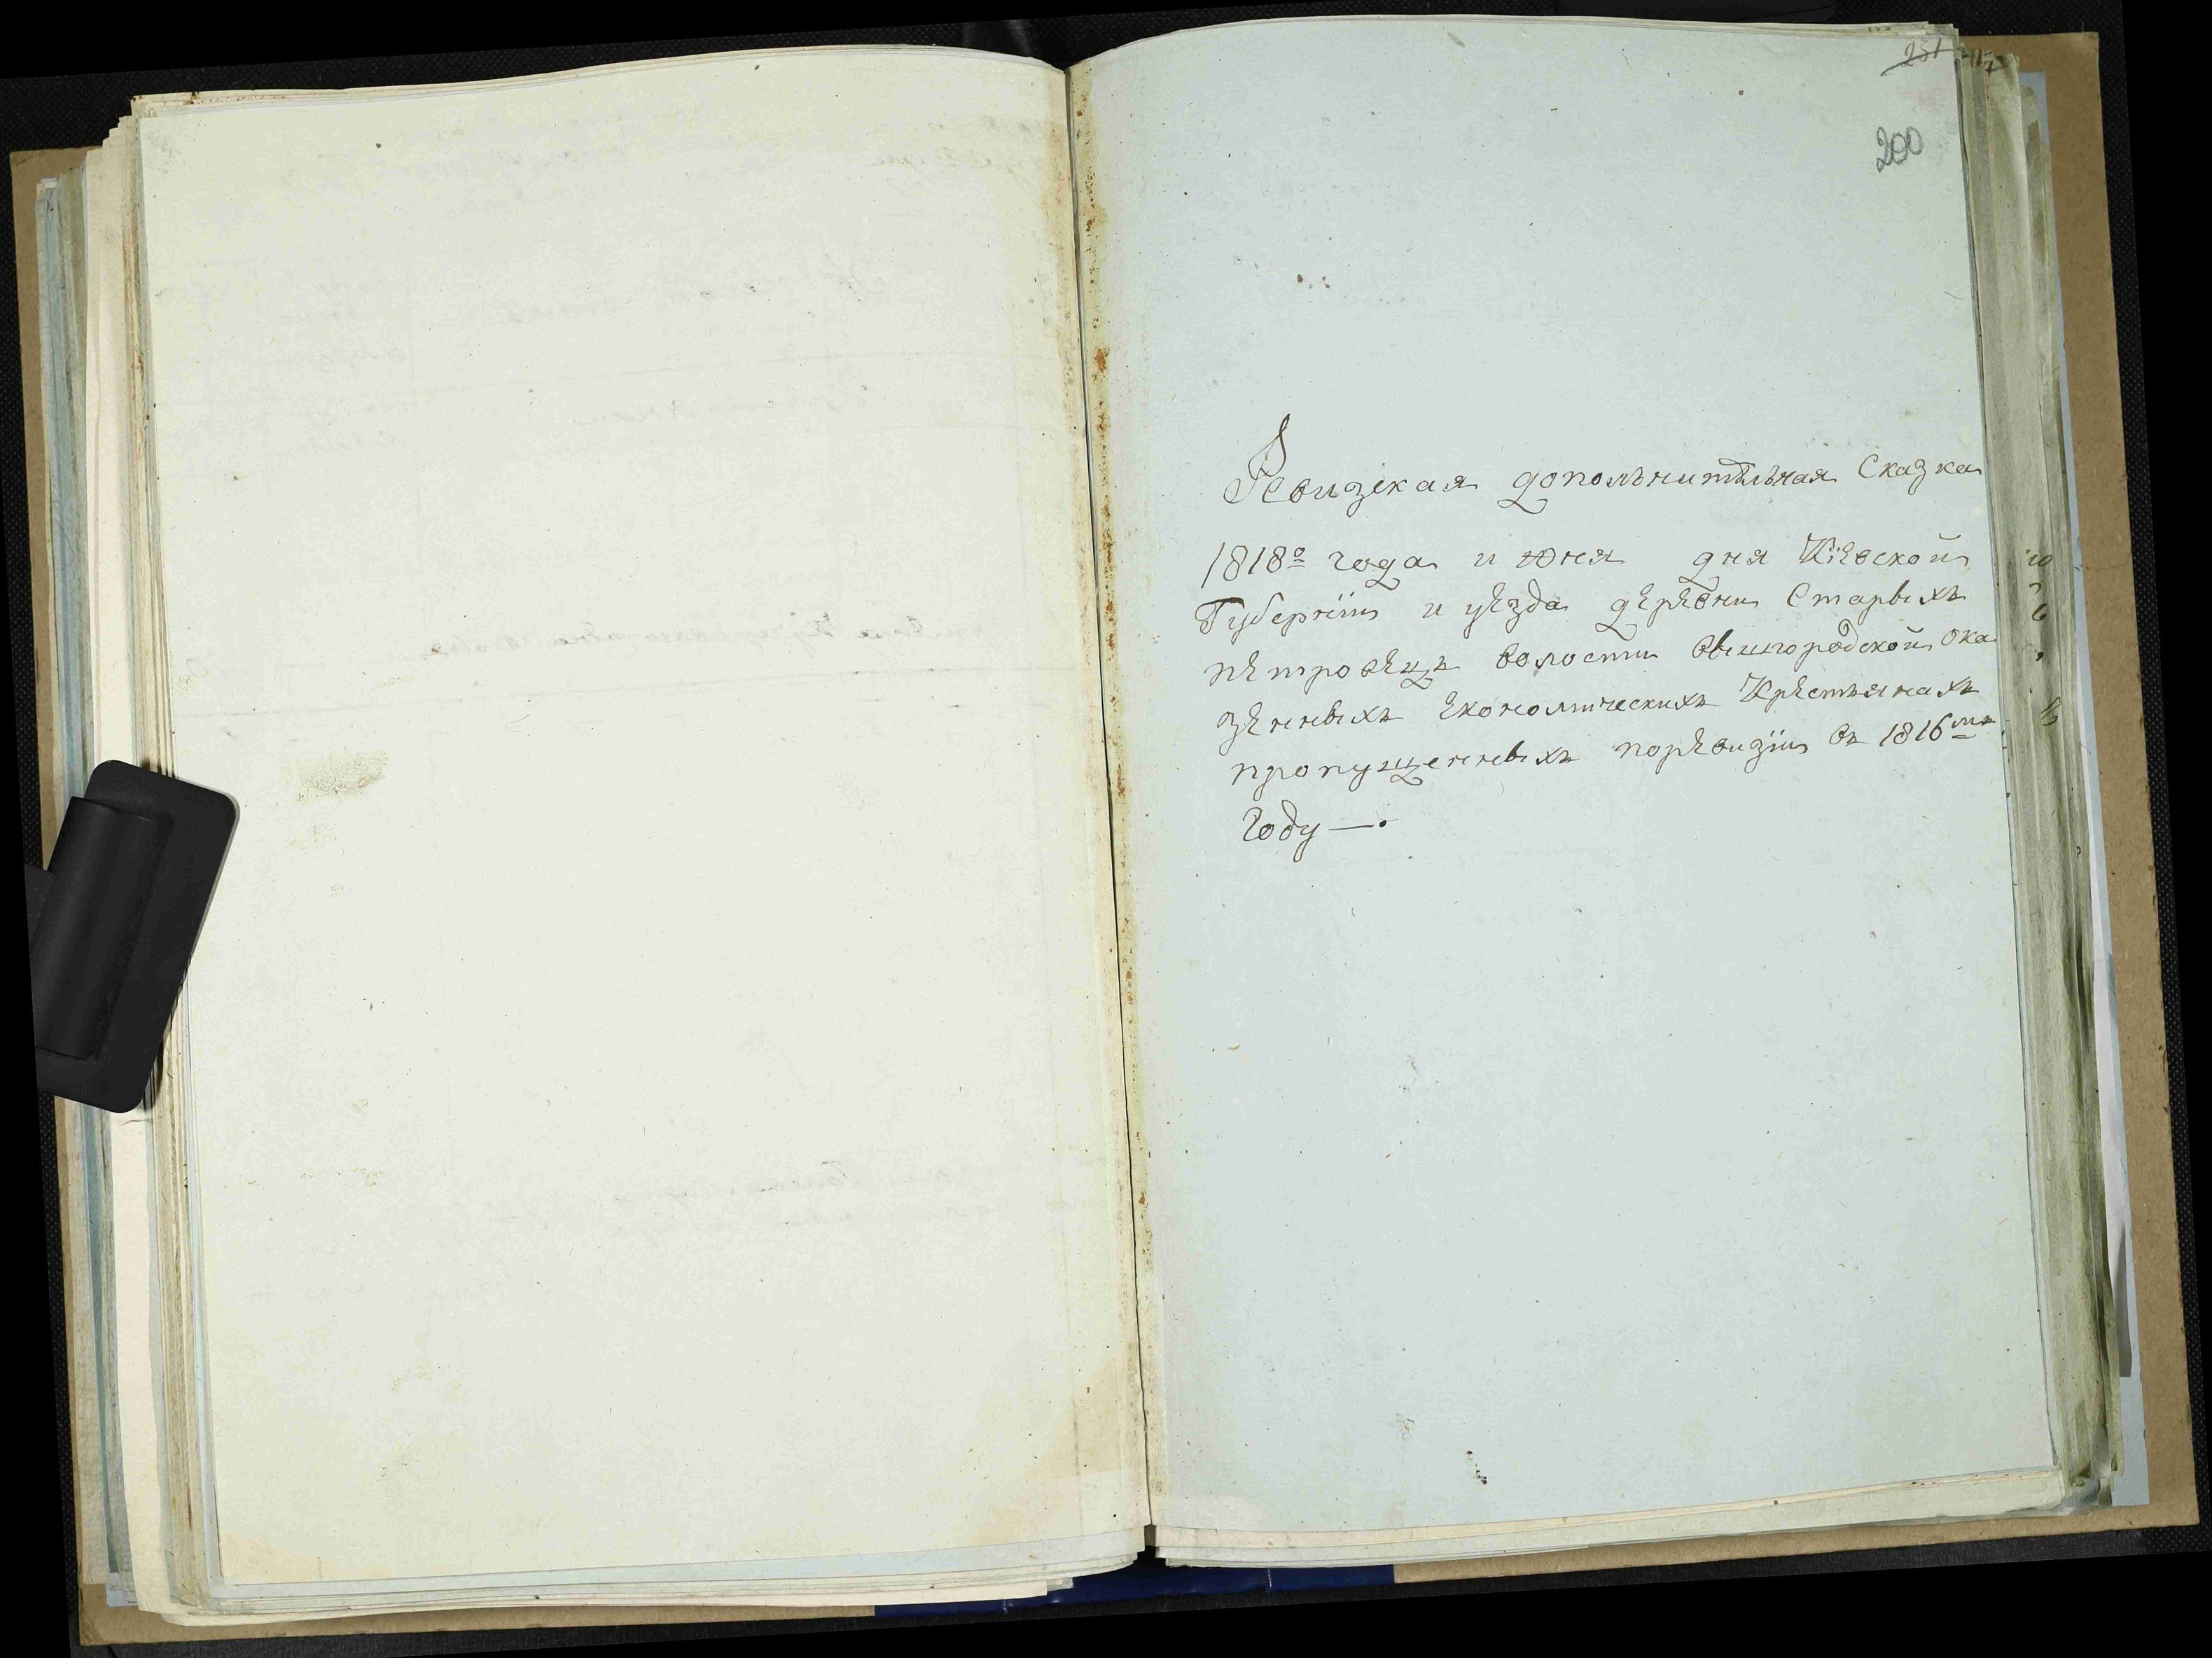 251
200
Ревизская дополънителъная Сказка
1818º года и юня дня Кіевской
Губерніи и уезда деревни Старыхъ
петровецъ волости вышгородской ока
зенныхъ Економическихъ Крестьянахъ
пропущенныхъ поревизіи въ 1816мъ
Году —.